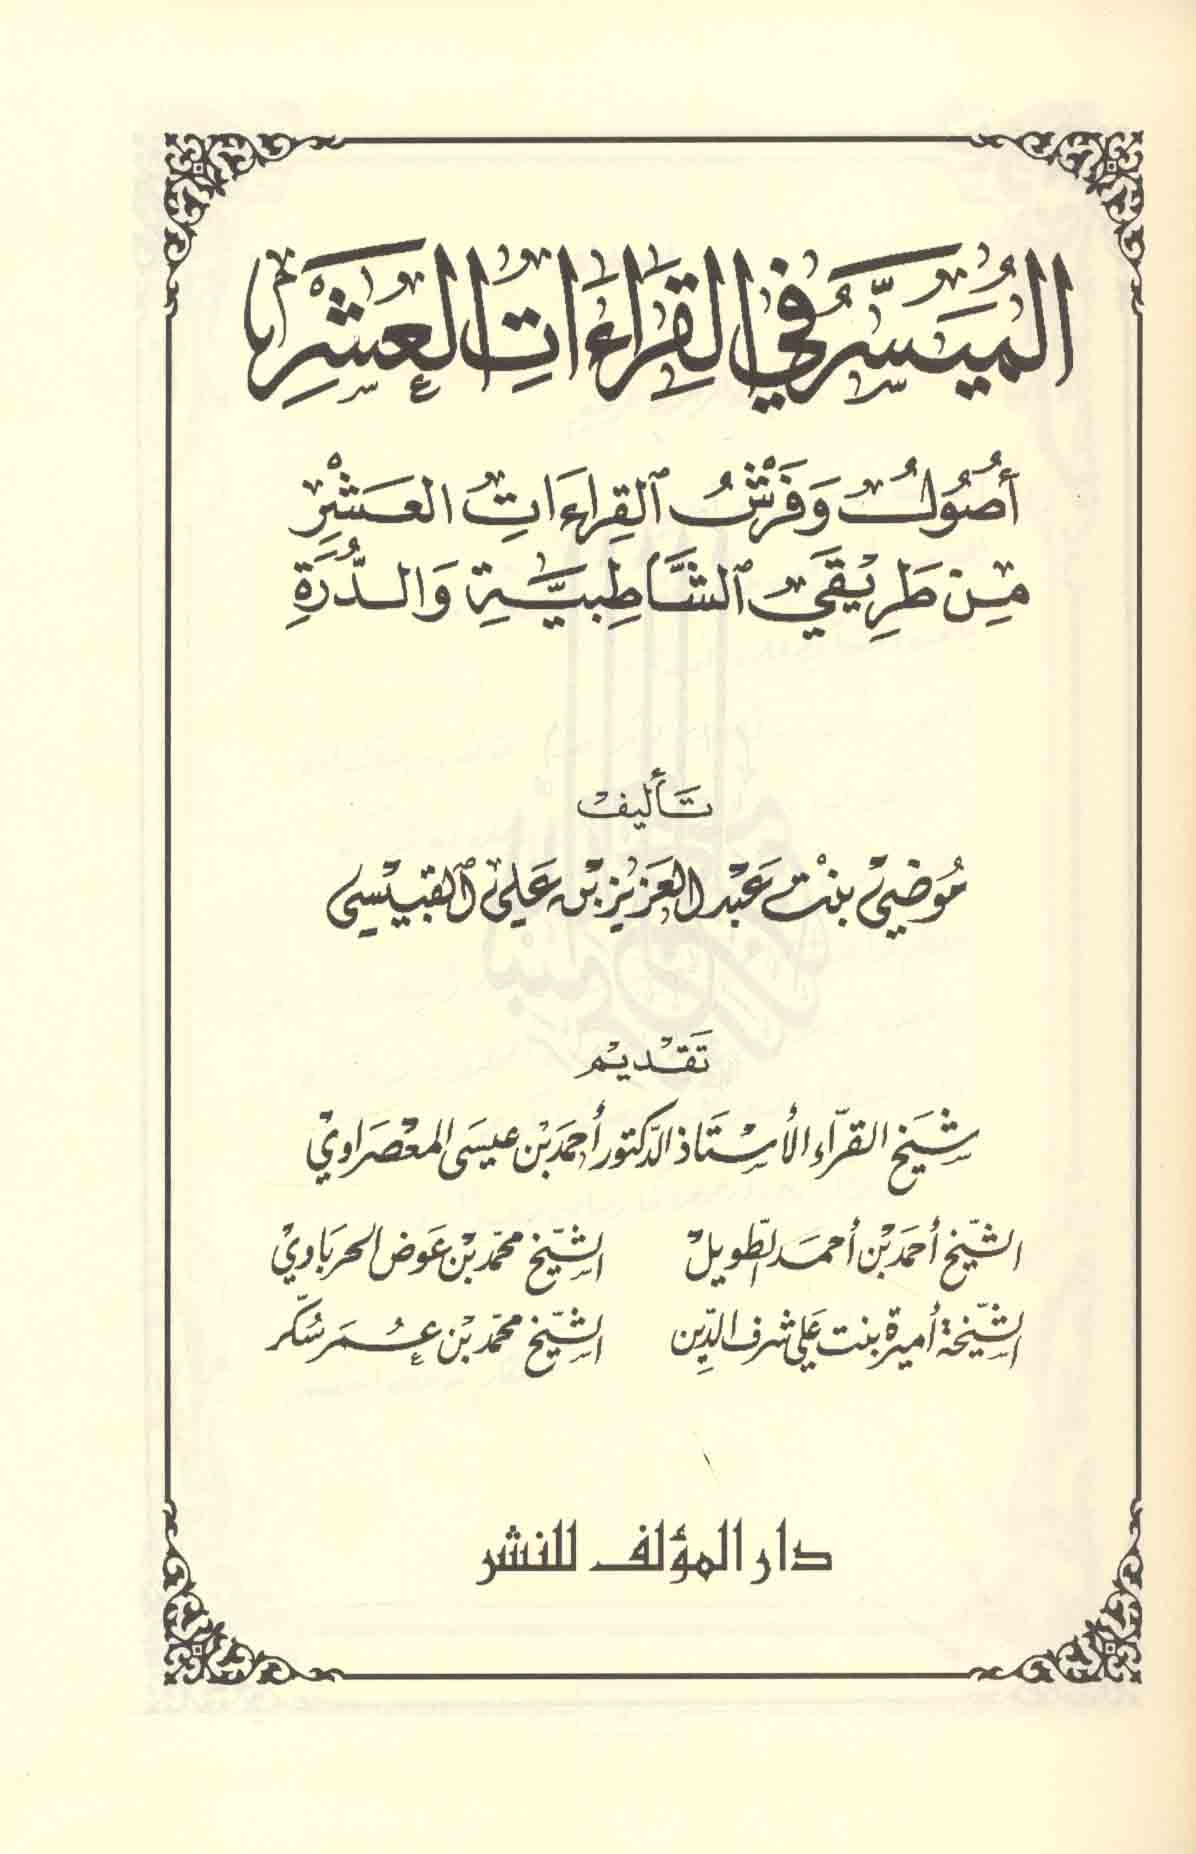 المُيَسَّرُ في القِرَاءَاتِ العَشْرِ
أُصُولُ وَفَرْشُ ٱلقِرَاءَاتِ العَشْرِ
مِنْ طَرِيْقَيِ ٱلشَّاطِبِيَّةِ وَالدُّرَةِ
تأليف
مُوضيْ بنْت عَبْد العَزيز بْن عَلي ٱلقبيْسي
تَقْديم
شَيخ القرّاء الأسْتَاذ الدّكتور أحمَد بْن عيسَى المعْصَراويْ
الشّيْخ أحمَد بْن أحمَد الطّويلْ
الشّيْخ محمّد بْن عَوَض الحربَاويْ
الشّيْخة أميرة بنت عَلي شرف الدِّين
الشّيْخ محمّد بْن عُمَر سُكّر
دار المؤلف للنشر